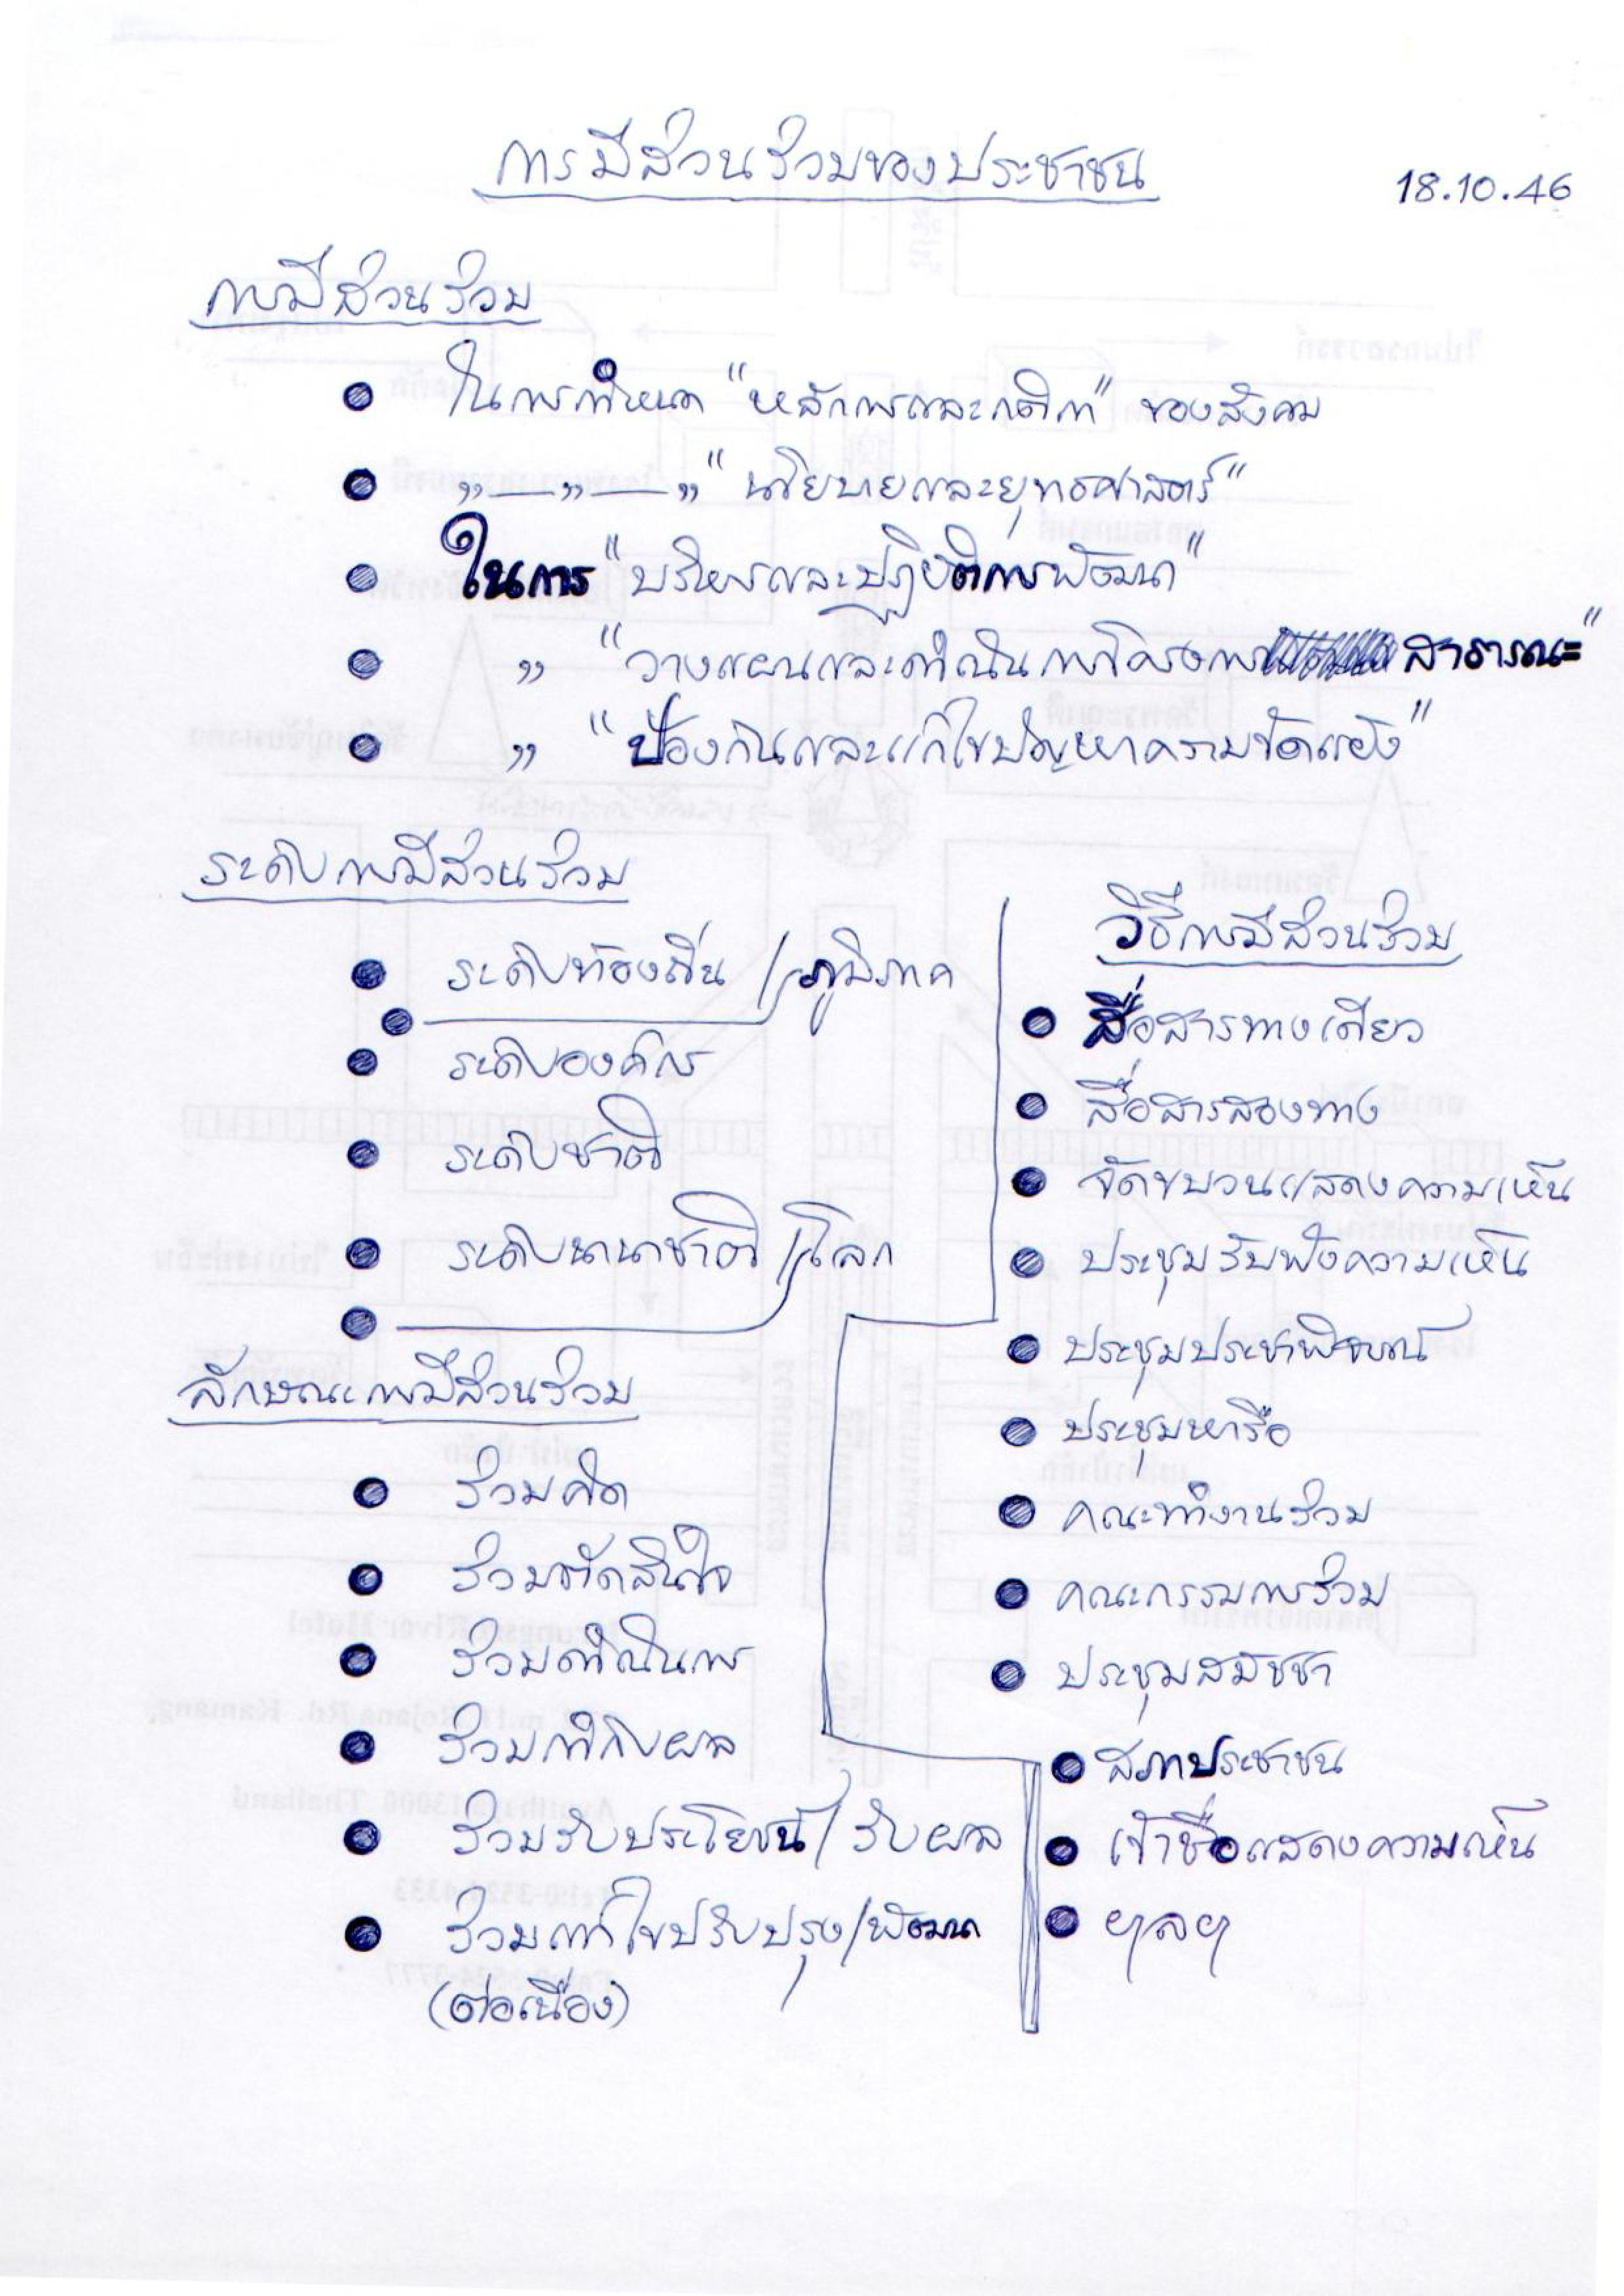 การมีส่วนร่วมของประชาชน
18.10.46
การมีส่วนร่วม
● ในการกำหนด "หลักการและกติกา" ของสังคม
● ,,—,,—,, "นโยบายและยุทธศาสตร์"
● ในการ "บริหารและปฏิบัติการพัฒนา"
● ,, "วางแผนและดำเนินการโครงการ สาธารณะ"
● ,, "ป้องกันและแก้ไขปัญหาความขัดแย้ง"
ระดับการมีส่วนร่วม
● ระดับท้องถิ่น / ภูมิภาค
●
● ระดับองค์กร
● ระดับชาติ
● ระดับนานาชาติ / โลก
●
ลักษณะการมีส่วนร่วม
● ร่วมคิด
● ร่วมตัดสินใจ
● ร่วมดำเนินการ
● ร่วมกำกับผล
● ร่วมรับประโยชน์ / รับผล
● ร่วมแก้ไขปรับปรุง/พัฒนา
(ต่อเนื่อง)
วิธีการมีส่วนร่วม
● สื่อสารทางเดียว
● สื่อสารสองทาง
● จัดขบวนแสดงความเห็น
● ประชุมรับฟังความเห็น
● ประชุมประชาพิจารณ์
● ประชุมหารือ
● คณะทำงานร่วม
● คณะกรรมการร่วม
● ประชุมสมัชชา
● สภาประชาชน
● เข้าชื่อแสดงความเห็น
● ฯลฯ